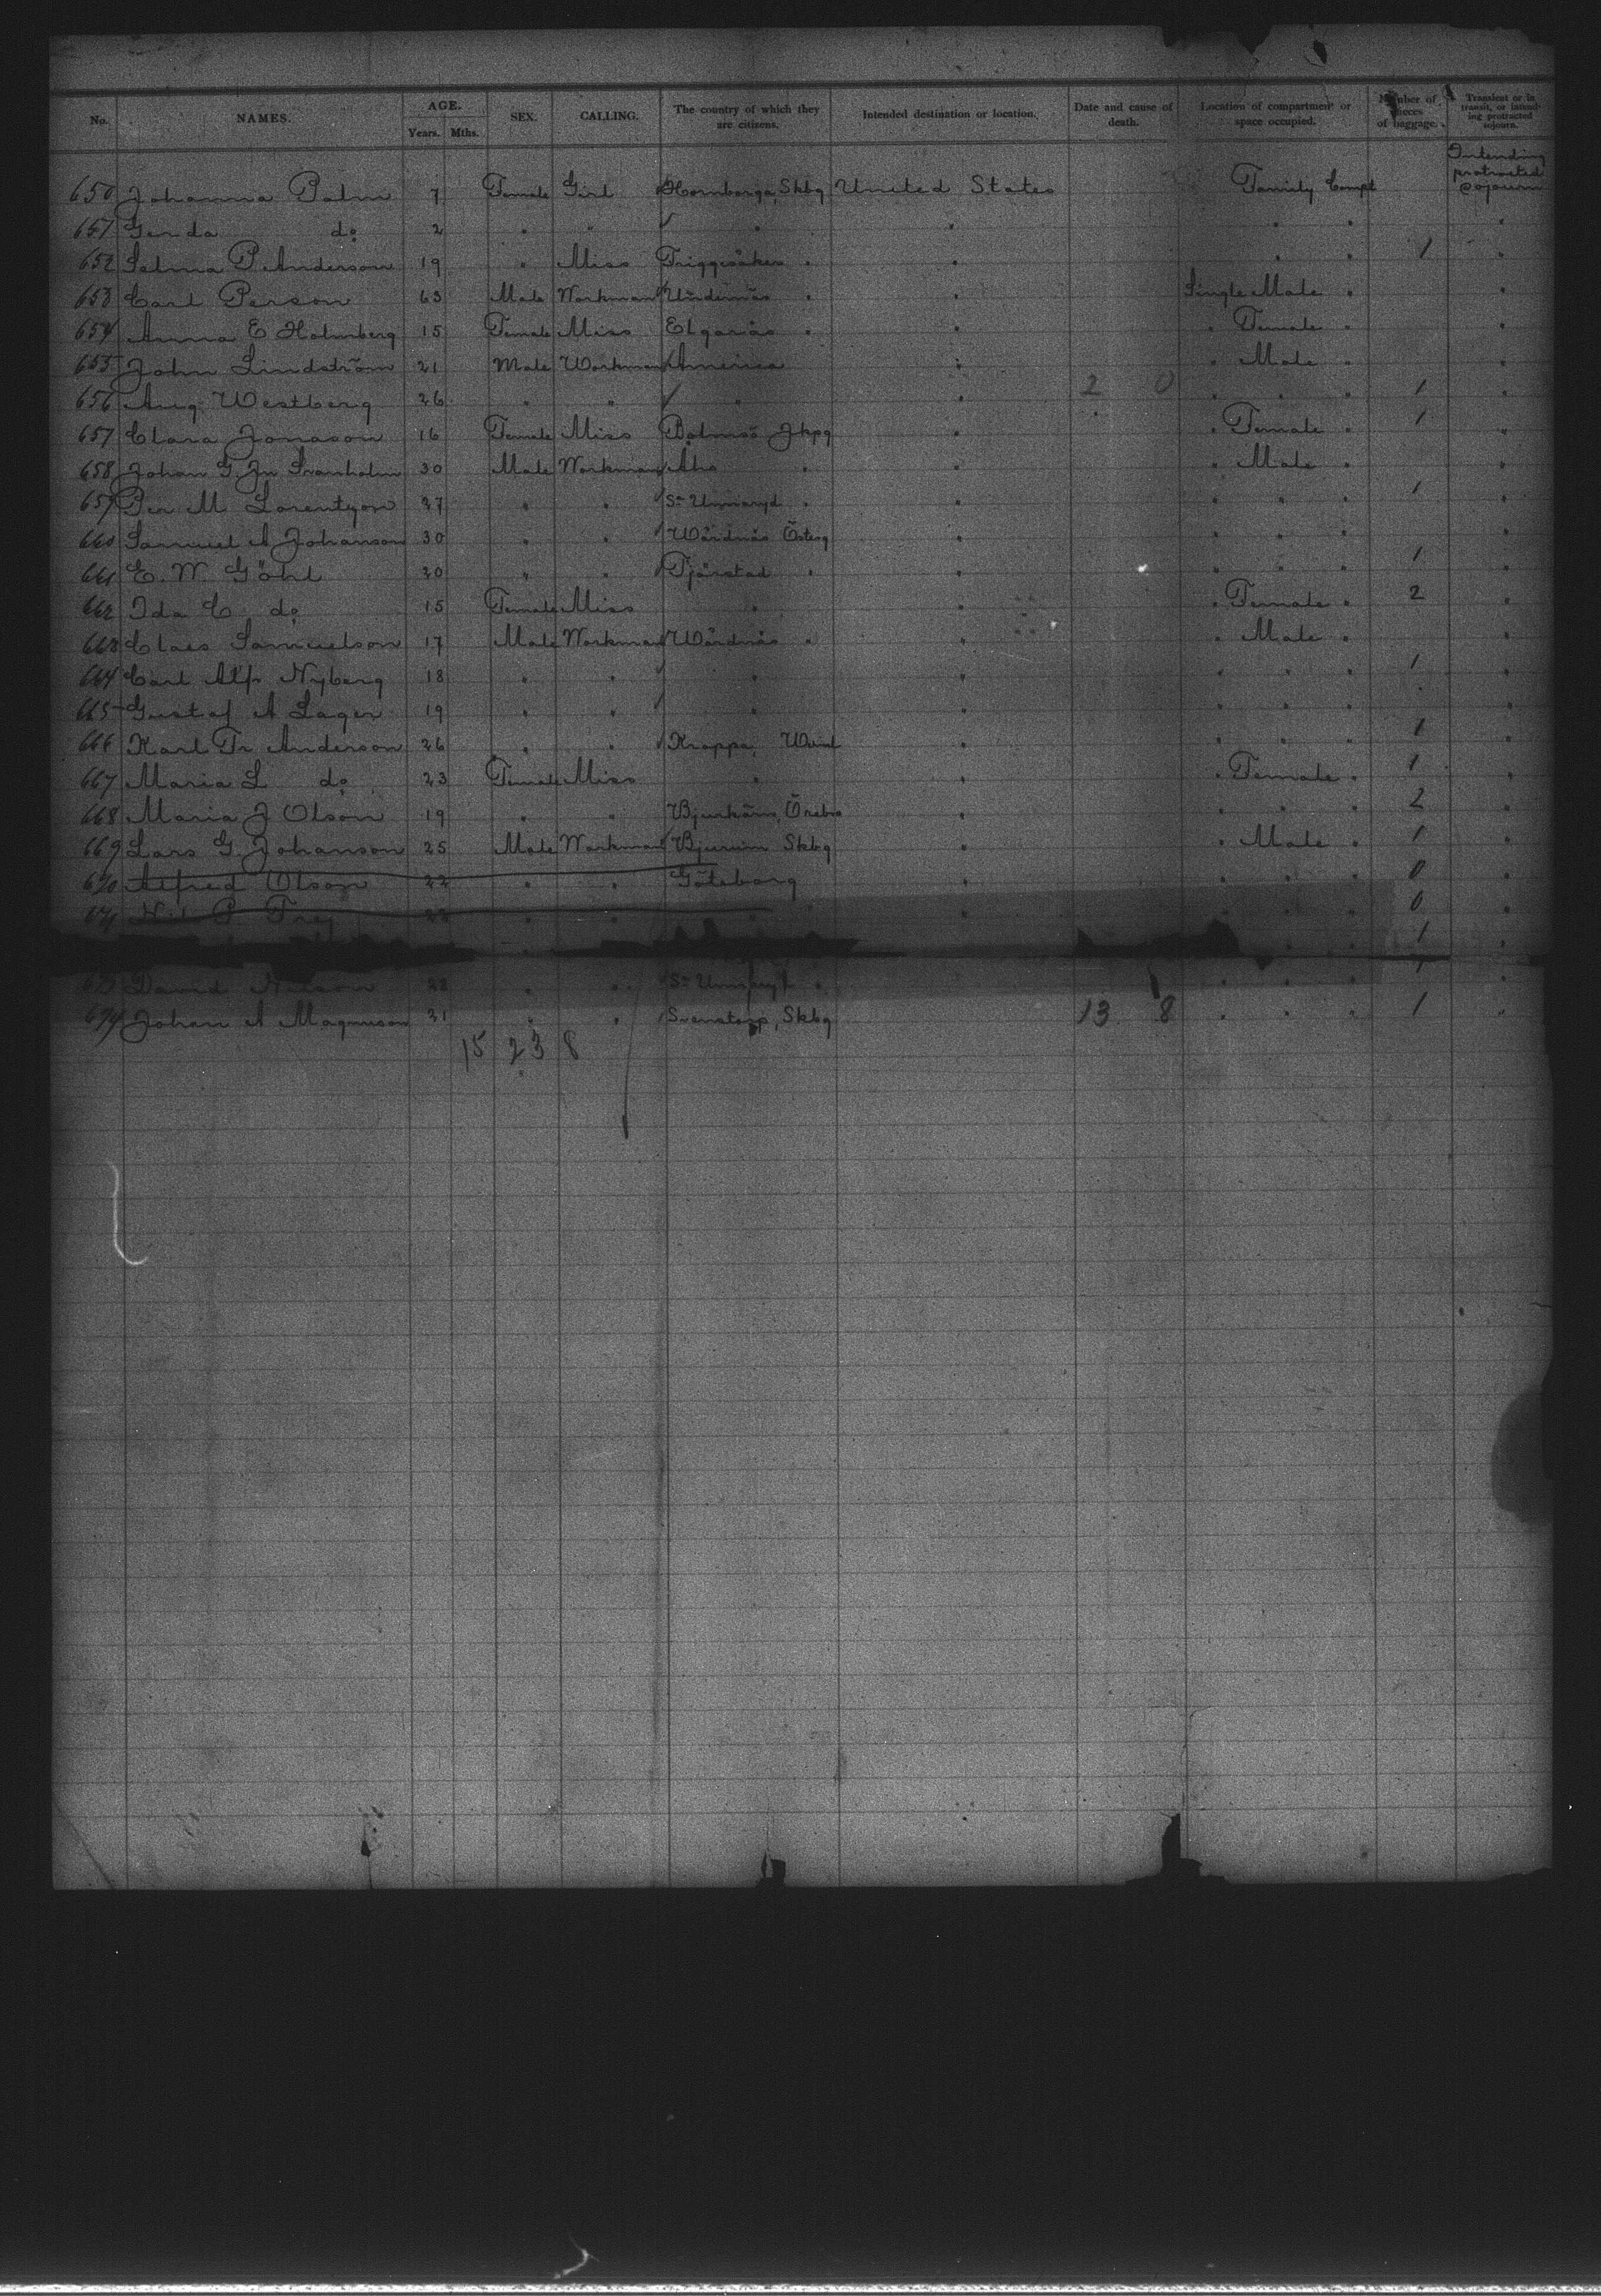 No. NAMES. AGE. Years. Mths. SEX. CALLING. The country of which they are citizens. Intended destination or location. Date and cause of death. Location of compartment or space occupied. Number of pieces of baggage. Transient or in transit, or intending protracted sojourn.
650 Johanna Palm 7 Female Girl Hornborga, Skbg United States Family Compt Intending protracted sojourn
651 Gerda do 2 " " " " " " "
652 Selma P Anderson 19 " Miss " " " " 1 "
653 Carl Person 63 Male Workman Undenäs " " Single Male " "
654 Anna E Holmberg 15 Female Miss Elgarås " " " Female " "
655 John Lindström 21 Male Workman America " " Male " "
656 Aug Westberg 26 " " " " 2 0 " " " 1 "
657 Clara Jonason 16 Female Miss Bolmsö Jkpg " " Female " 1 "
658 Johan G. Jn Svanholm 30 Male Workman Ahs " " " Male " "
659 Per M Lorentzon 27 " " Sr Unnaryd " " " " " 1 "
660 Samuel A Johanson 30 " " Wårdnäs Österg " " " " "
661 E. W. Göhl 20 " " Tjärstad " " " " " 1 "
662 Ida C do 15 Female Miss " " " Female " 2 "
663 Claes Samuelson 17 Male Workman Wårdnäs " " " Male " "
664 Carl Alfr Nyberg 18 " " " " " " " 1 "
665 Gustaf A Lager 19 " " " " " " " "
666 Karl Fr Anderson 26 " " Kroppa, " " " " 1 "
667 Maria L do 23 Female Miss " " " Female " 1 "
668 Maria J Olson 19 " " Örebro " " " " 2 "
669 Lars G. Johanson 25 Male Workman Bjurum Skbg " " Male " 1 "
670 Alfred Olson 22 " " Göteborg " " " " 0 "
671 P. Frej 22 " " " " " " " 0 "
" " " 1 "
673 David Nilson 22 " " Sr " " " " 1 "
674 Johan A Magnuson 21 " " Svenstorp, Skbg 13 8 " " " 1 "
15 23 8